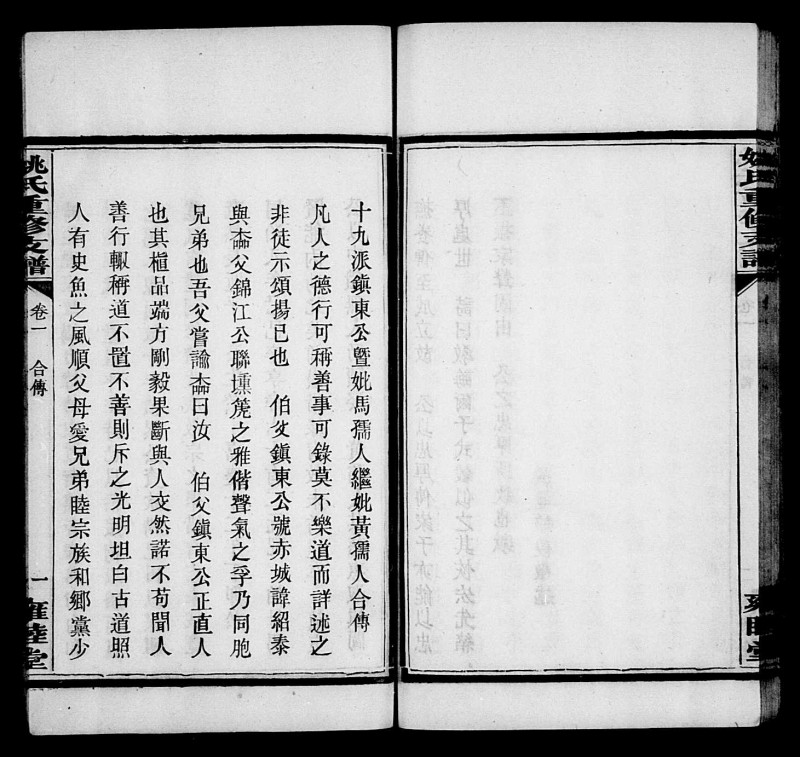 十九派鎮東公曁妣馬孺人繼妣黃孺人合傳
凡人之德行可稱善事可錄莫不樂道而詳述之
非徒示頌揚已也　伯父鎮東公號亦城諱紹泰
與㭐父錦江公聯壎篪之雅偕聲氣之孚乃同胞
兄弟也吾父嘗諭㭐曰汝　伯父鎮東公正直人
也其植品端方剛毅果斷與人交然諾不苟聞人
善行輙稱道不置不善則斥之光明坦白古道照
人有史魚之風順父母愛兄弟睦宗族和鄉黨少
姚氏重修支譜
卷一　合傳
一　雍睦堂